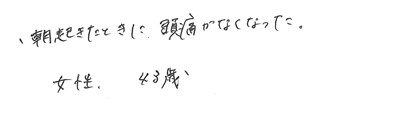 、朝起きたときに頭痛がなくなった。
女性、 43歳、